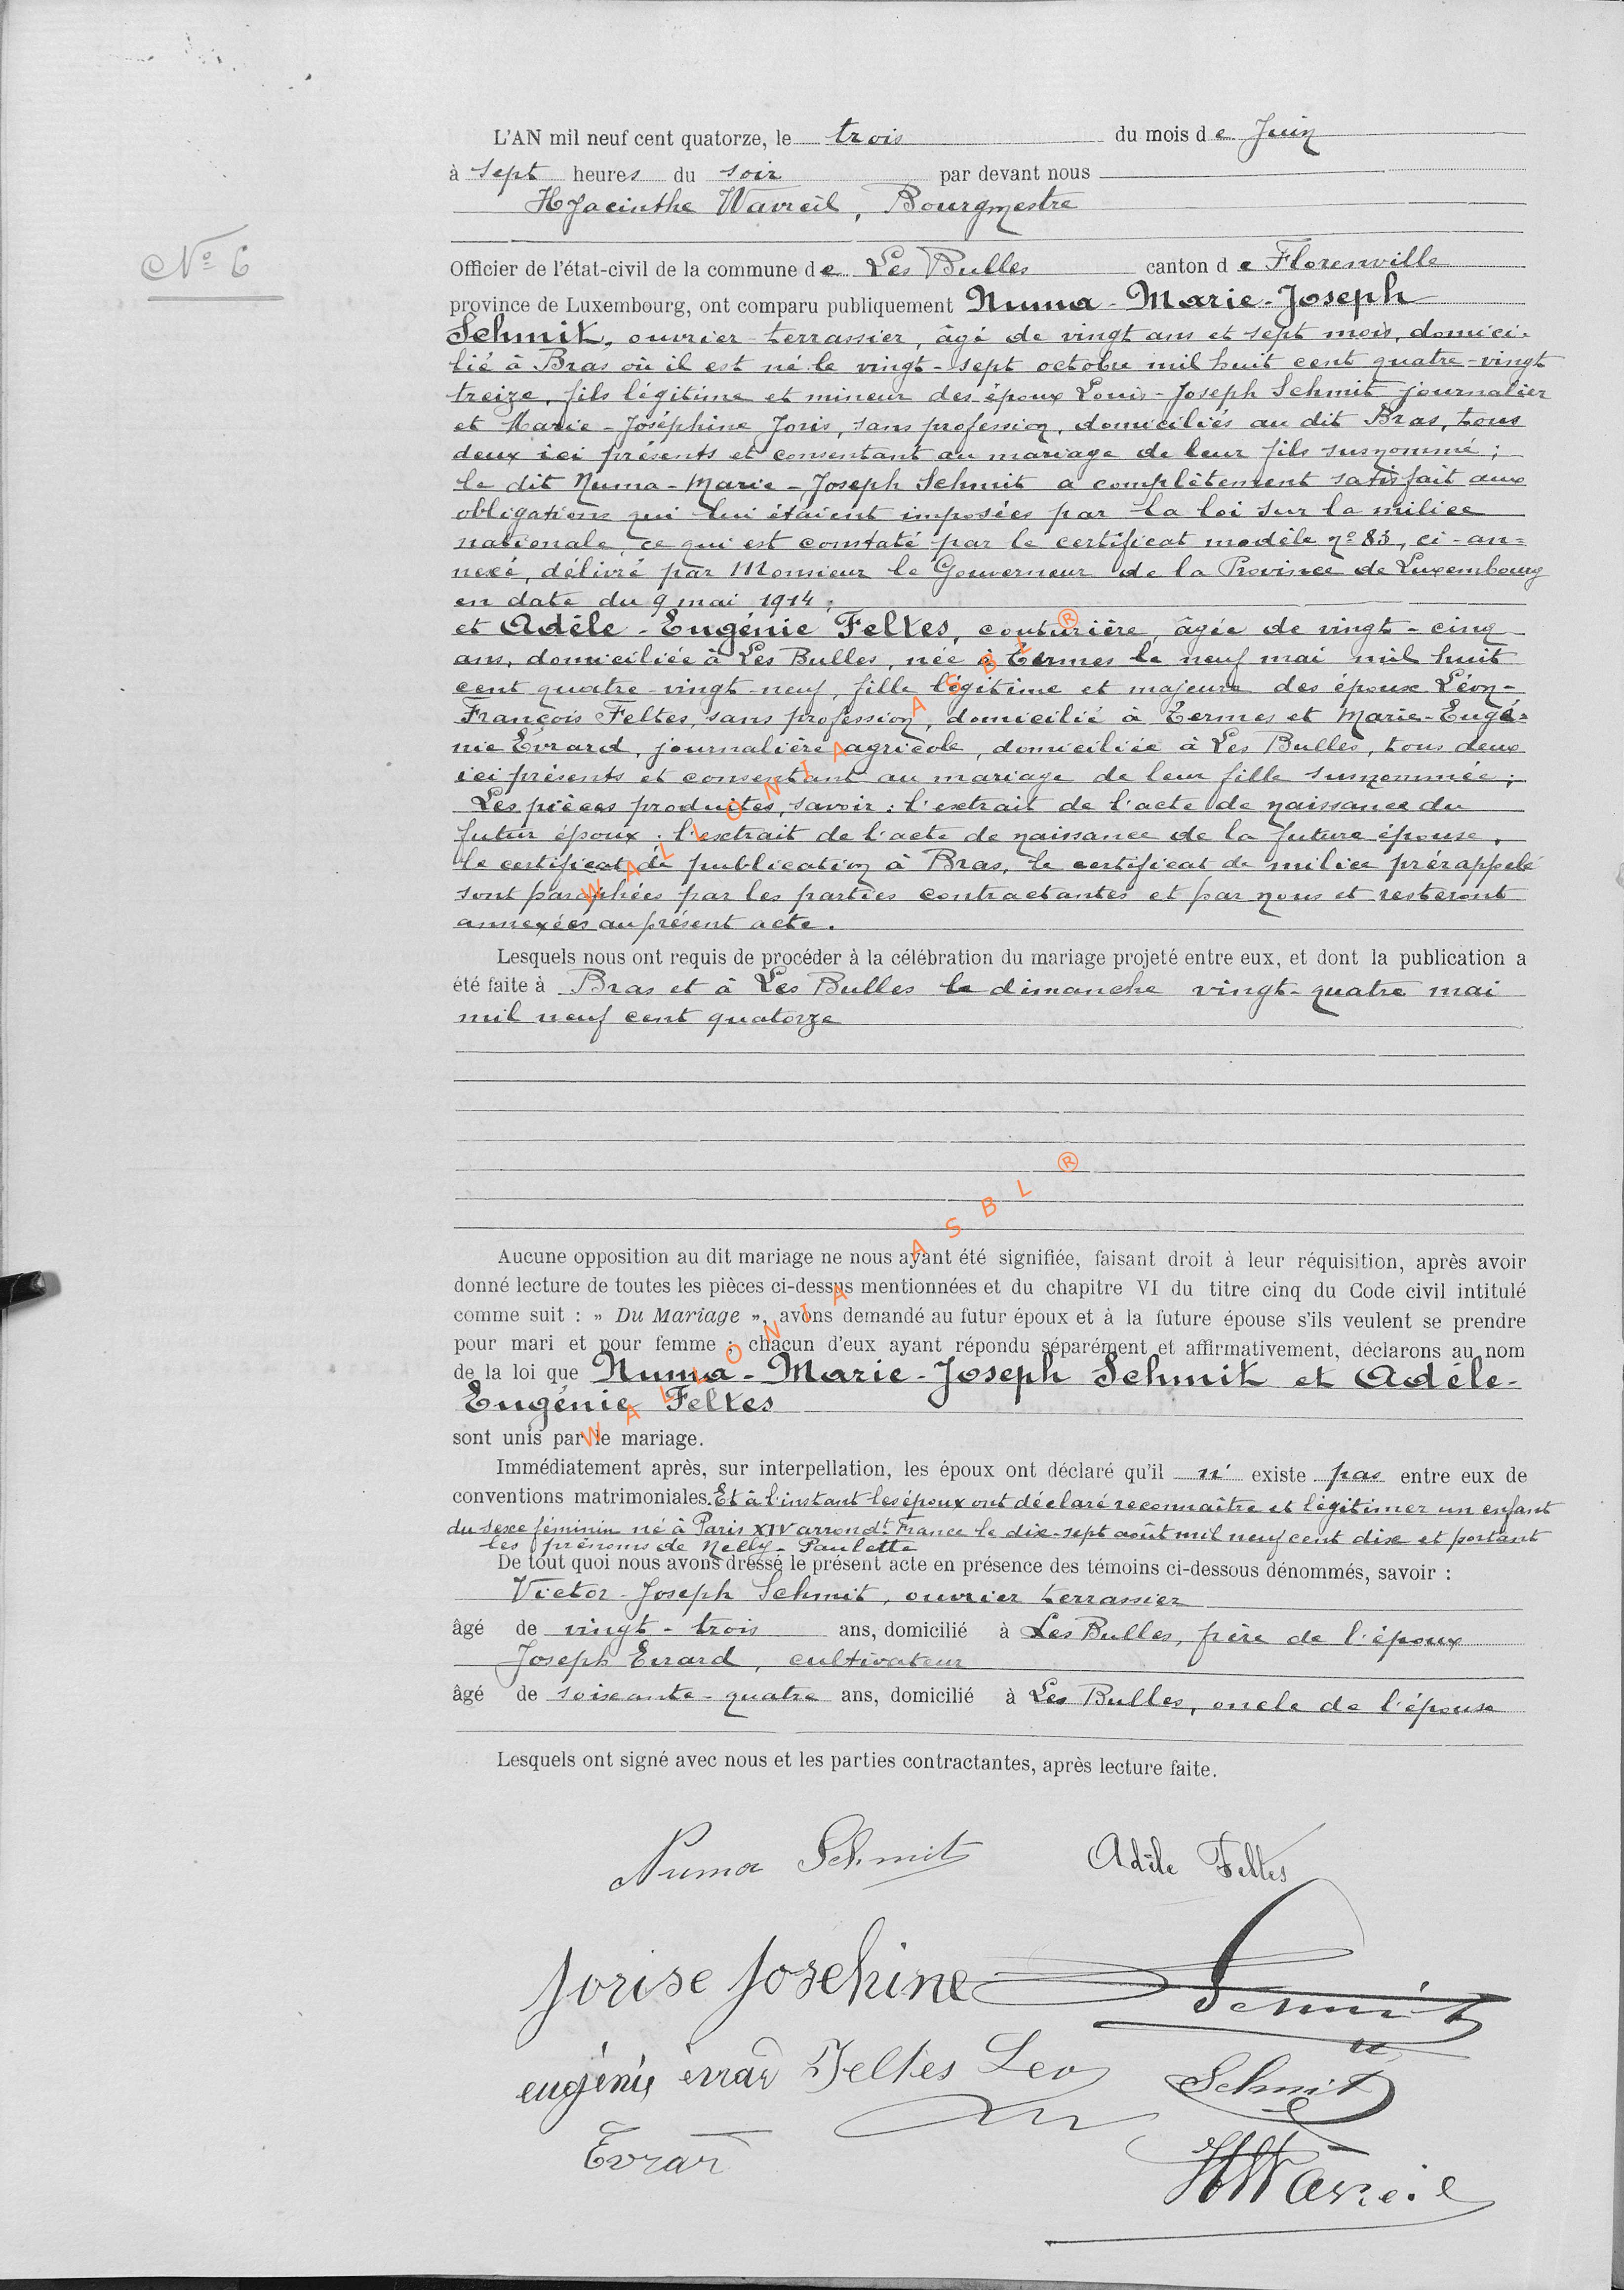 L'AN mil neuf cent quatorze, le trois du mois de Juin
à sept heures du soir par devant nous
HJacinthe Wavreil, Bourgmestre
No 6
Officier de l'état-civil de la commune de Les Bulles canton de Florenville
province de Luxembourg, ont comparu publiquement Numa-Marie-Joseph
Schmit, ouvrier-terrassier, âgé de vingt ans et sept mois, domici-
lié à Bras où il est né le vingt-sept octobre mil huit cent quatre-vingt
treize, fils légitime et mineur des époux Louis-Joseph Schmit journalier
et Marie-Joséphine Joris, sans profession, domiciliés au dit Bras, tous
deux ici présents et consentant au mariage de leur fils susnommé ;
le dit Numa-Marie-Joseph Schmit a complètement satisfait aux
obligations qui lui étaient imposées par la loi sur la milice
nationale, ce qui est constaté par le certificat modèle no 83, ci-an=
nexé, délivré par Monsieur le Gouverneur de la Province de Luxembourg
en date du 9 mai 1914 ;
et Adèle-Eugénie Feltes, couturière, âgée de vingt-cinq
ans, domiciliée à Les Bulles, née à Termes le neuf mai mil huit
cent quatre-vingt-neuf, fille légitime et majeure des époux Léon-
François Feltes, sans profession, domicilié à Termes et Marie-Eugé=
nie Évrard, journalière agricole, domiciliée à Les Bulles, tous deux
ici présents et consentant au mariage de leur fille susnommée ;
Les pièces produites, savoir : l'extrait de l'acte de naissance du
futur époux ; l'extrait de l'acte de naissance de la future épouse,
le certificat de publication à Bras, le certificat de milice prérappelé
sont paraphées par les parties contractantes et par nous et resteront
annexées au présent acte.
Lesquels nous ont requis de procéder à la célébration du mariage projeté entre eux, et dont la publication a
été faite à Bras et à Les Bulles le dimanche vingt-quatre mai
mil neuf cent quatorze
Aucune opposition au dit mariage ne nous ayant été signifiée, faisant droit à leur réquisition, après avoir
donné lecture de toutes les pièces ci-dessus mentionnées et du chapitre VI du titre cinq du Code civil intitulé
comme suit : » Du Mariage », avons demandé au futur époux et à la future épouse s'ils veulent se prendre
pour mari et pour femme ; chacun d'eux ayant répondu séparément et affirmativement, déclarons au nom
de la loi que Numa-Marie-Joseph Schmit et Adèle-
Eugénie Feltes
sont unis par le mariage.
Immédiatement après, sur interpellation, les époux ont déclaré qu'il n' existe pas entre eux de
conventions matrimoniales. Et à l'instant les époux ont déclaré reconnaître et légitimer un enfant
du sexe féminin né à Paris XIV arrondt France le dix-sept août mil neuf cent dix et portant
les prénoms de Nelly-Paulette
De tout quoi nous avons dressé le présent acte en présence des témoins ci-dessous dénommés, savoir :
Victor-Joseph Schmit, ouvrier terrassier
âgé de vingt-trois ans, domicilié à Les Bulles, frère de l'époux
Joseph Evrard, cultivateur
âgé de soixante-quatre ans, domicilié à Les Bulles, oncle de l'épouse
Lesquels ont signé avec nous et les parties contractantes, après lecture faite.
Numa Schmit Adèle Feltes
Jorise Josehine Schmit
eugénie èrrad Feltes Leon Schmit
Evrar HWavreil
WALLONIA ASBL ®
WALLONIA ASBL ®